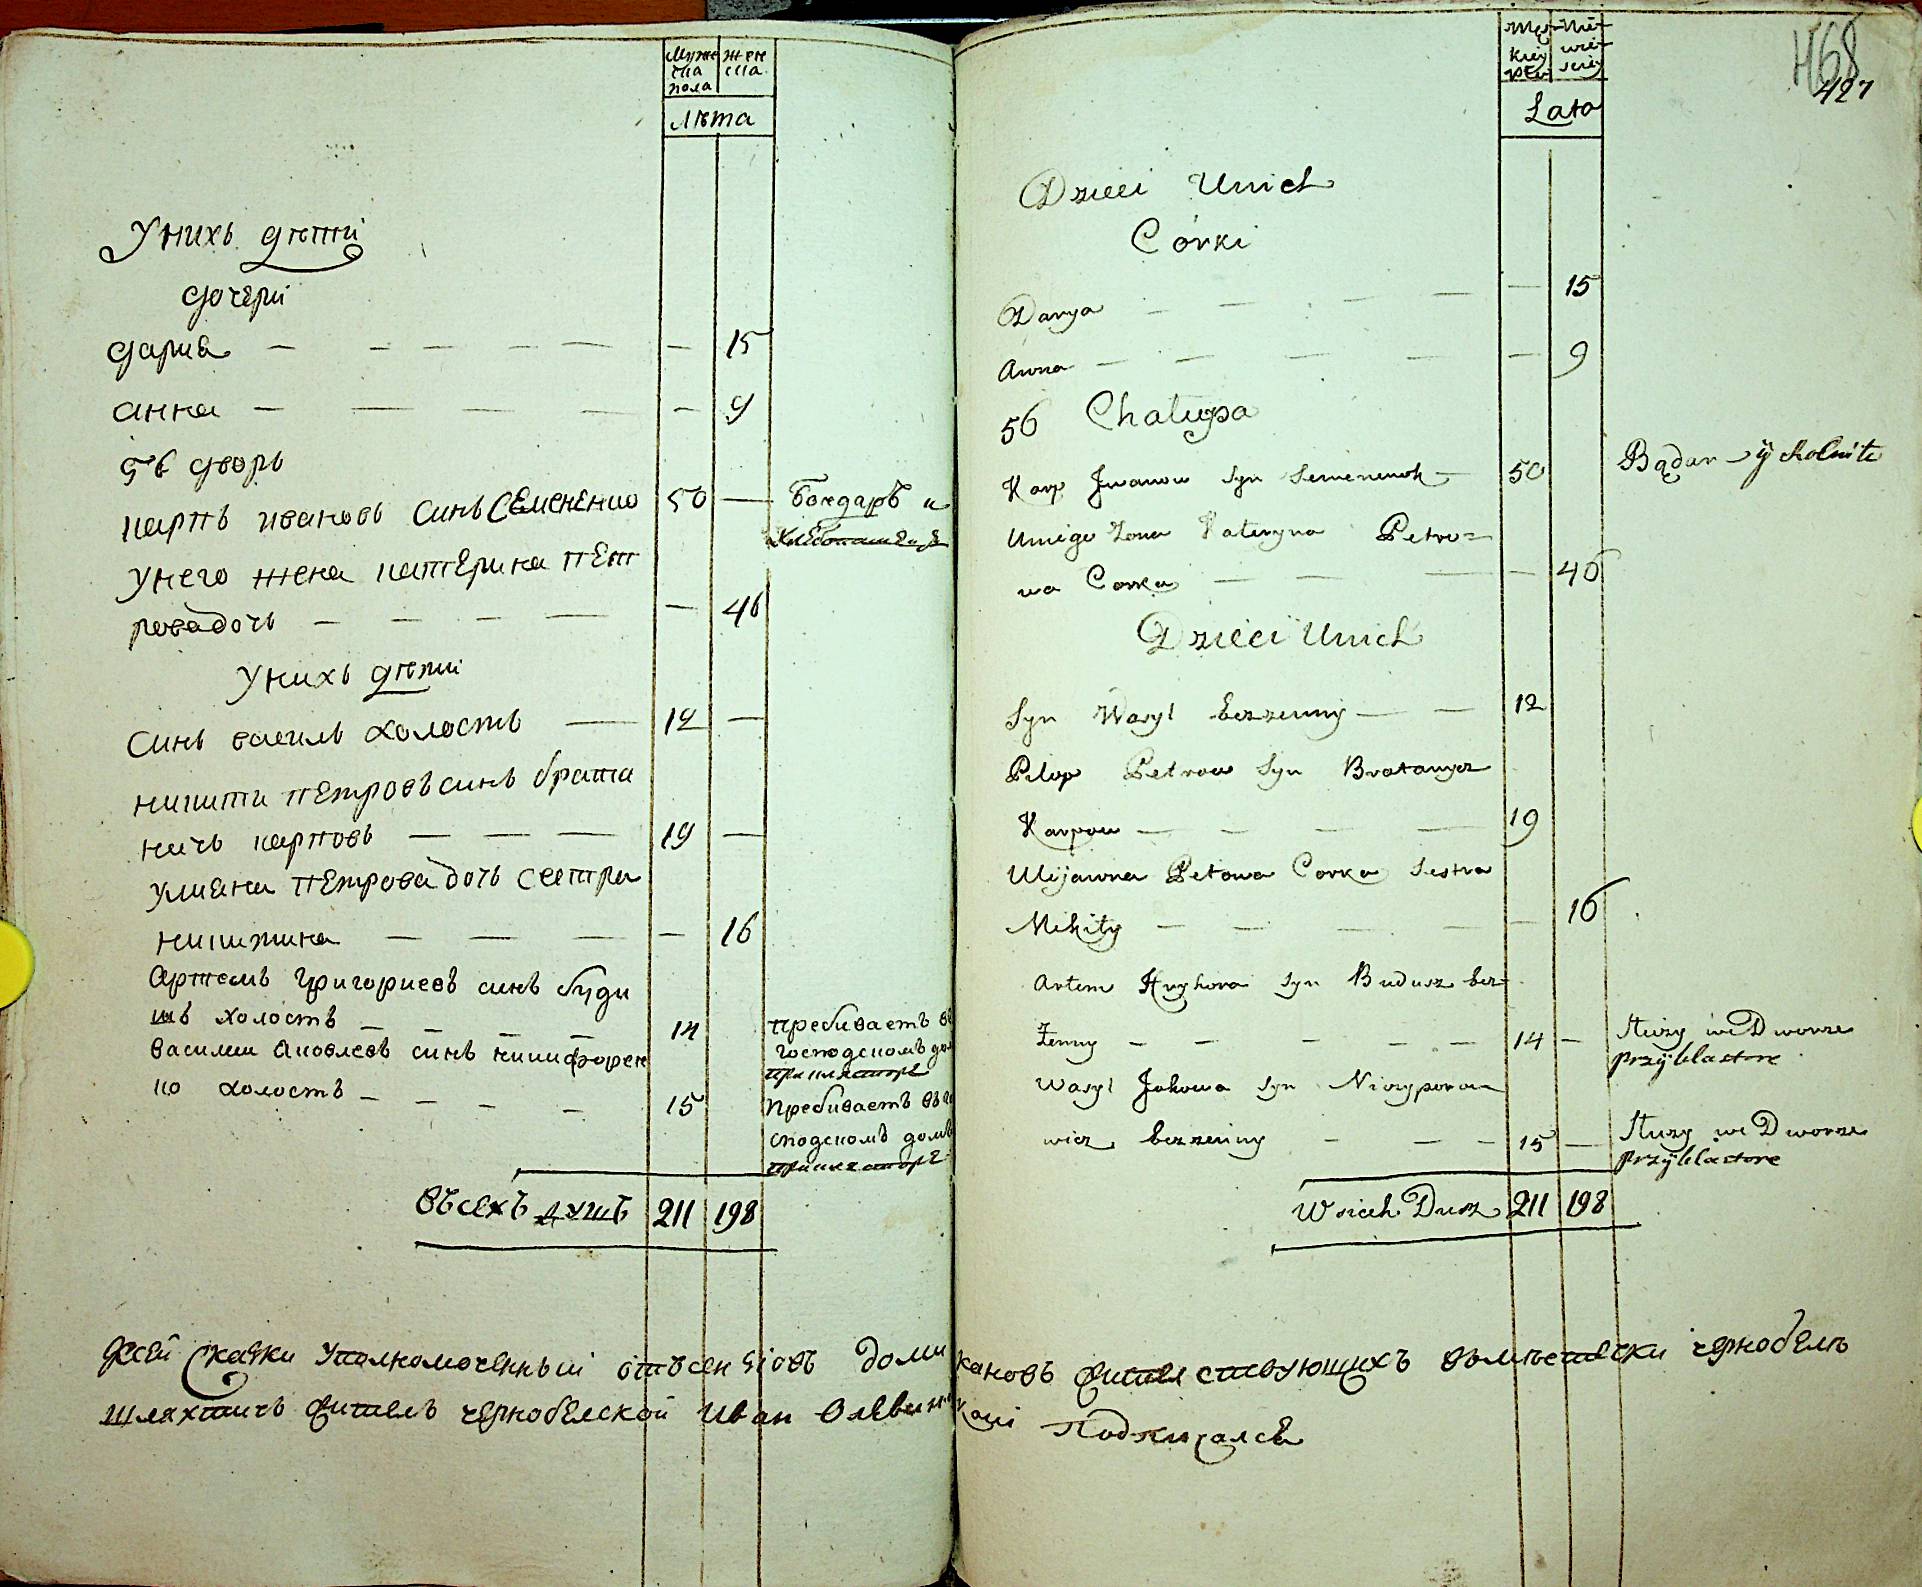 Мужес
ка
пола
жен
ска
Лѣта
Унихъ дѣти
дочери
дариа — — — — — — 15
анна — — — — — 9
56 дворъ
карпъ ивановъ синъ Семененко 50 — Бондаръ и
Хлебопашецъ
Унего жена катерина пет
рова дочъ — — — — — 46
Унихъ дѣти
синъ василь холостъ — 12 —
никити петровъ синъ брата
ничъ карповъ — — — 19 —
улиана петрова дочъ сестра
никитина — — — — 16
Артемъ григориевъ синъ буди
шъ холостъ — — — — 14 пребиваетъ въ
господскомъ до
василии Яковлевъ синъ никифорен
ко холостъ — — — — 15 Пребиваетъ въ го
сподскомъ домѣ
Въсехъ душъ 211 198
Lata
468
427
Dzieci Unich
Córki
Darya — — — — — 15
Anna — — — — — 9
56 Chałupa
Karp Iwanow Syn Semenenok — 50 Bądar y Rolnik
Uniego Żona Kateryna Petro=
wa Corka — — — — 46
Dzieci Unich
Syn Wasyl bezzenny — — 12
Pilip Petrow Syn Bratanycz
Karpow — — — — 19
Ulijanna Petowa Corka Sestra
Mikity — — — — — 16
Artem Hryhora Syn Budusz bez=
Zenny — — — — — 14 — Służy we Dworze
przyklastore
Wasyl Jakowa Syn Niczyporo=
wicz bezzenny — — — 15 — Służy we Dworze
przyklastore
Wsich Dusz 211 198
Ксей Скаски Уполномоченный отъ ксенѣовъ домикановъ жителствующихъ въместечки чернобелѣ
шляхтичъ жителъ чернобелской Иван Подписался